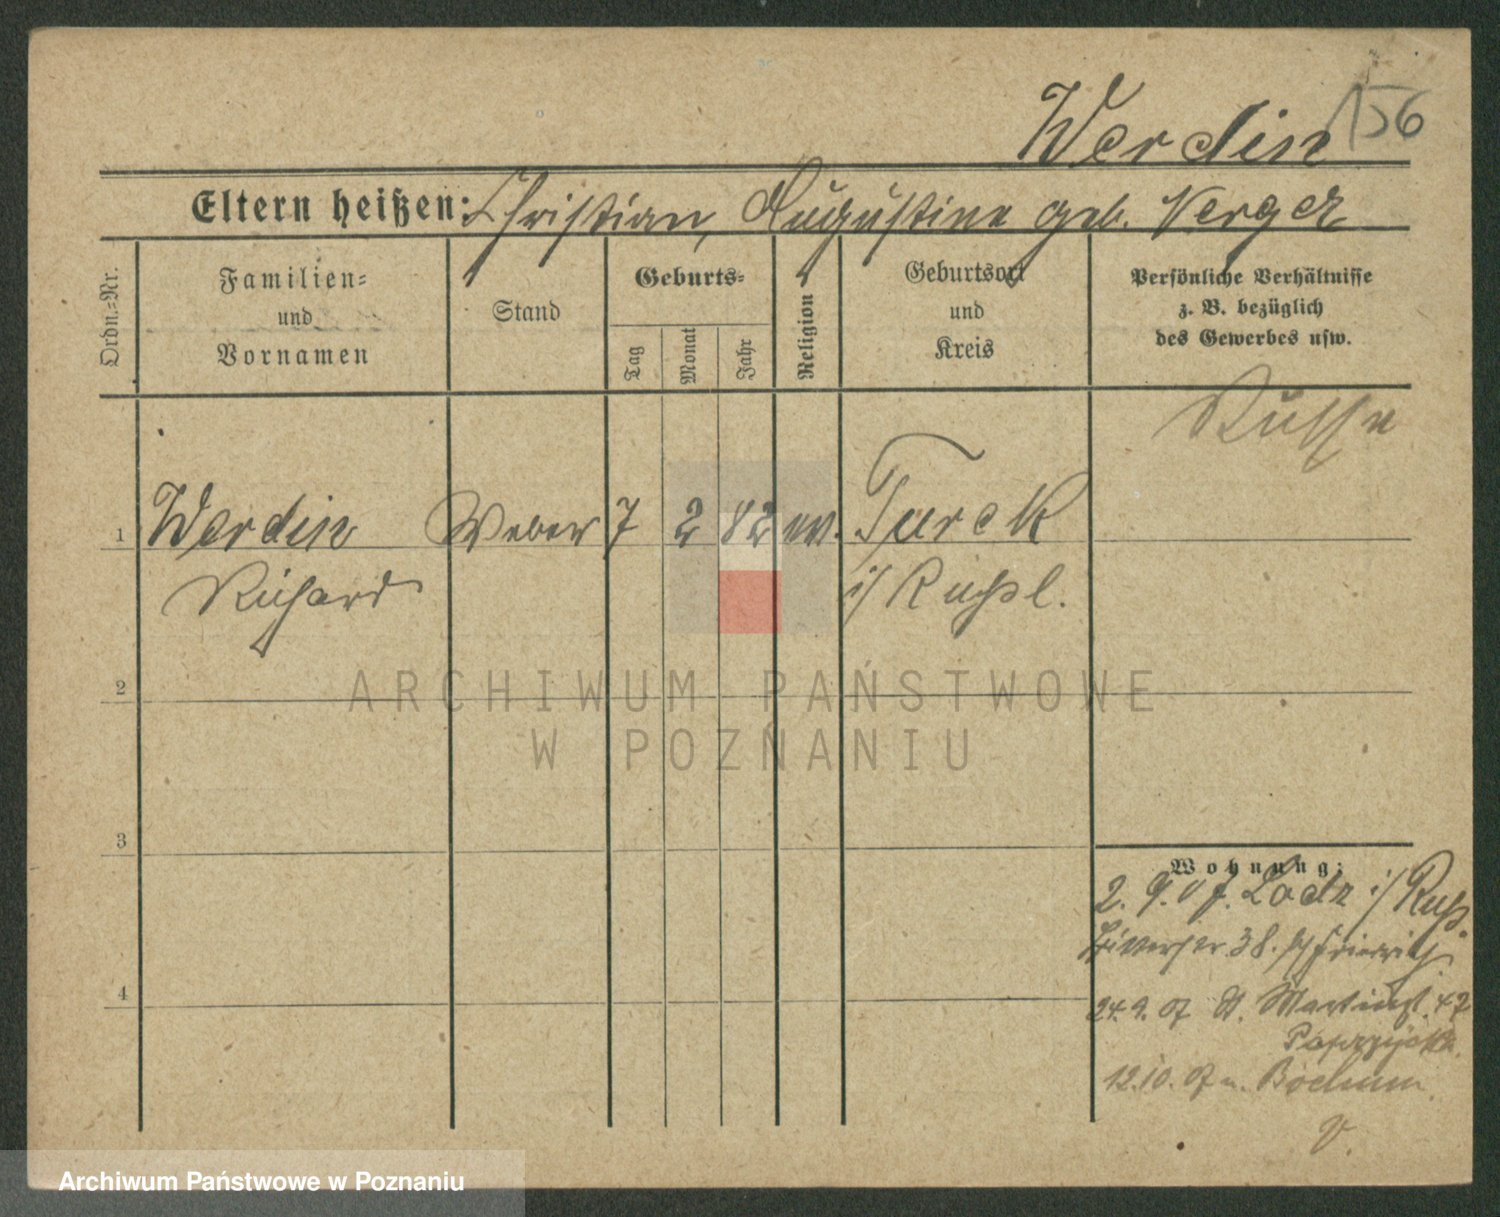 156
Werdin
Eltern heißen: Christian, Augustine geb. Verger
Ordn.-Nr.
Familien- und Vornamen
Stand
Geburts-
Tag
Monat
Jahr
Religion
Geburtsort und Kreis
Persönliche Verhältnisse z. B. bezüglich des Gewerbes usw.
Russe
1 Werdin Weber 7 2 82 ev. Turek
Richard i/ Russl.
2
ARCHIWUM PAŃSTWOWE
W POZNANIU
3
Wohnung:
2. 9. 07. Lodz i/ Russ.
38. Friedrich
4
24. 9. 07 St. Martinst. 47
12. 10. 07 n. Bochum
V.
Archiwum Państwowe w Poznaniu